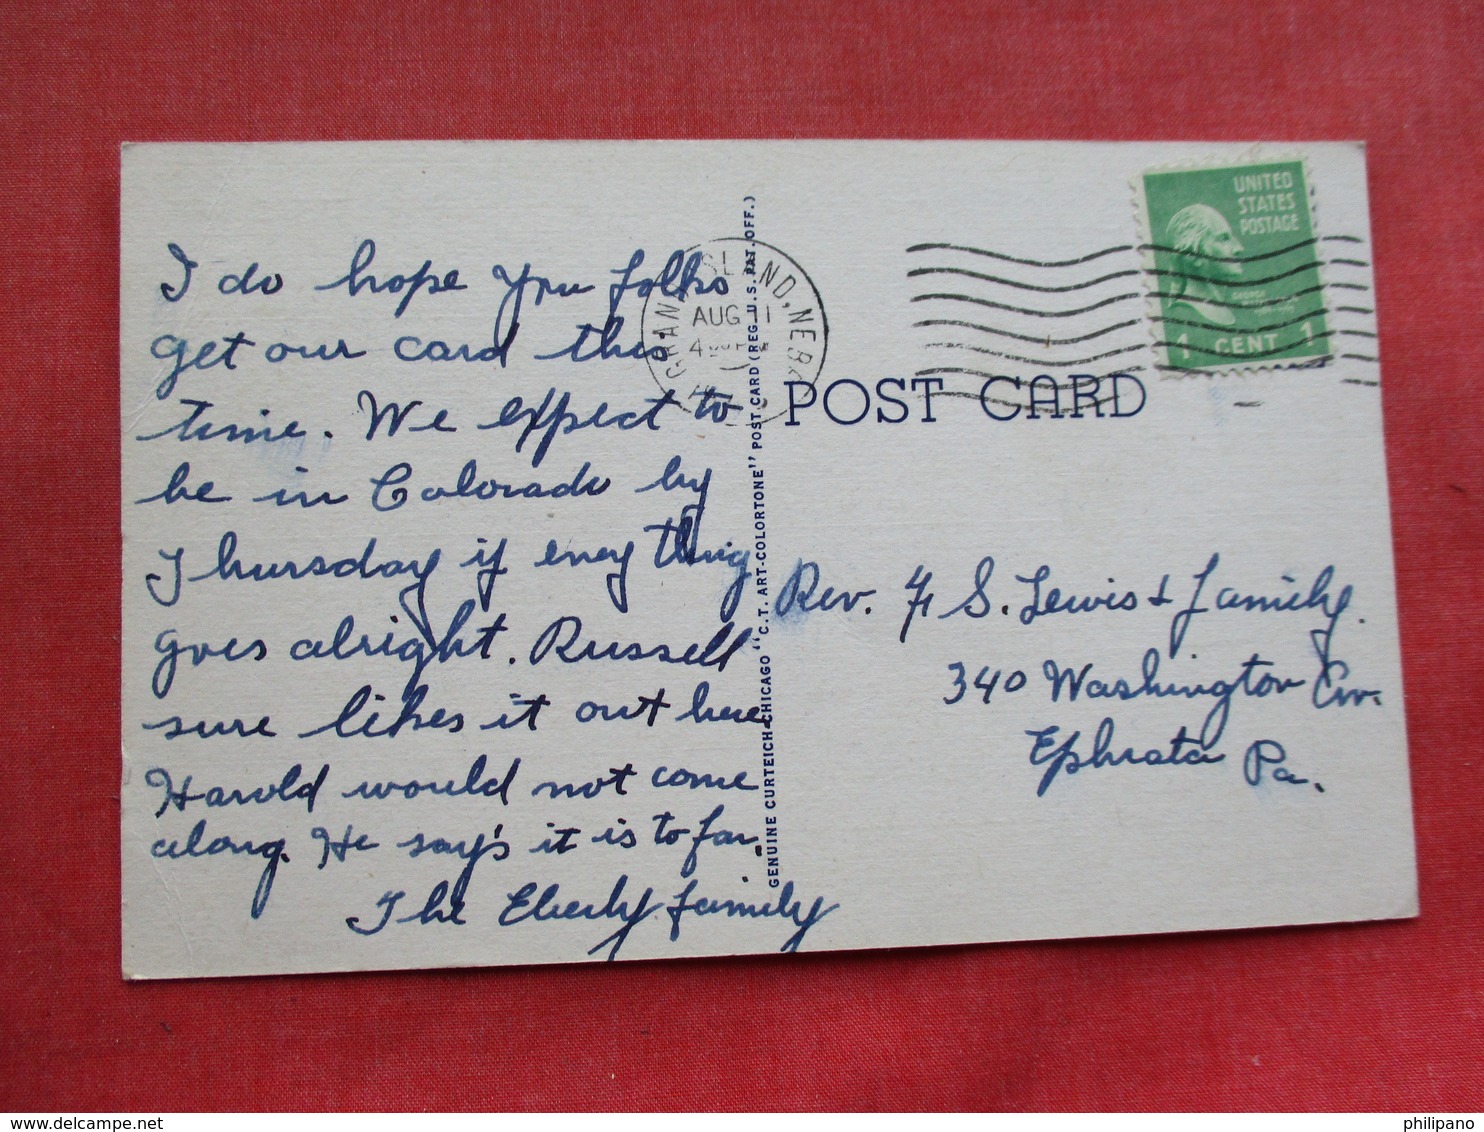 I do hope you folks
get our card this
time. We expect to
be in Colorado by
Thursday if every thing
goes alright. Russell
sure likes it out here
Harold would not come
along. He say's it is to far.
The Eberly family
GRAND ISLAND, NEBR.
AUG 11
GENUINE CURTEICH-CHICAGO "C.T. ART-COLORTONE" POST CARD (REG. U.S. PAT. OFF.)
UNITED
STATES
POSTAGE
1 CENT 1
POST CARD
Rev. H S. Lewis & Family.
340 Washington Av.
Ephrata Pa.
www.delcampe.net
philipano